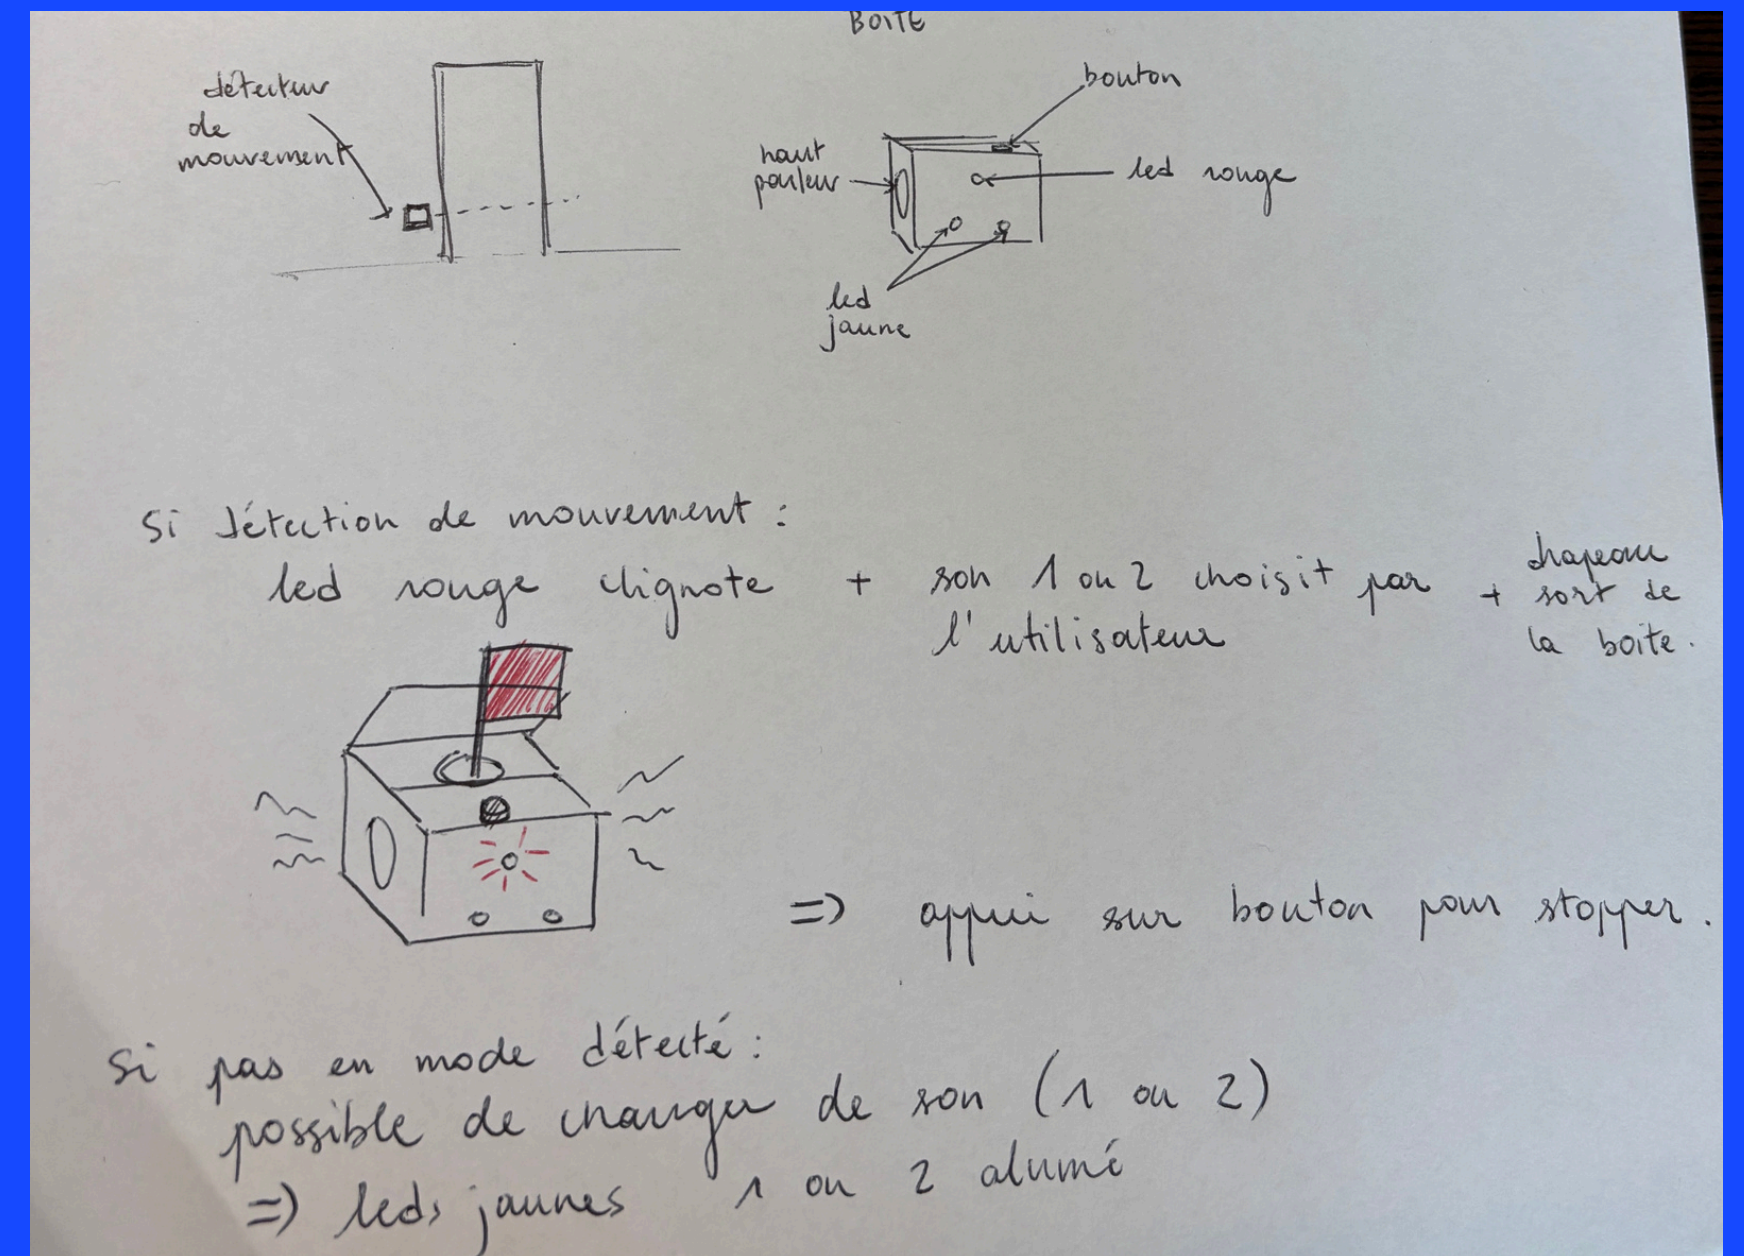 BOITE
détecteur
de
mouvement
bouton
haut
parleur
led rouge
led
jaune
Si détection de mouvement :
led rouge clignote + son 1 ou 2 choisit par
l'utilisateur
+ chapeau
sort de
la boite.
=> appui sur bouton pour stopper.
Si pas en mode détecté :
possible de changer de son (1 ou 2)
=> leds jaunes 1 ou 2 alumé